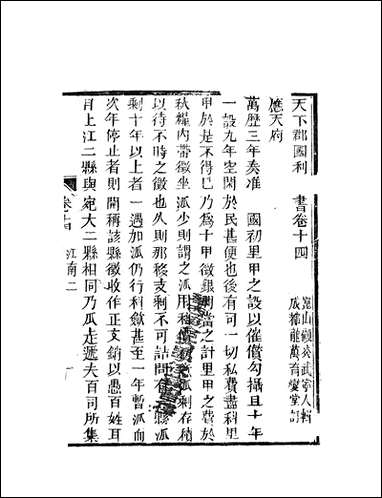 天下郡國利 書卷十四
崑山 炎武寧人輯
成都龍萬育燮堂訂
應天府
萬歷三年奏准 國初里甲之設以催償勾攝且十年
一設九年空閑於民甚便也後有司一切私費盡科里
甲於是不得已乃為十甲徵銀 當之計里甲之費於
秋糧內帶徵坐派少則謂之派用 派剩存積
以待不時之徵也久則那移支剩不可詰問 縣派
剩十年以上者一遇加派仍行科斂甚至一年暫派而
次年停止者則開稱該縣徵收作正支銷以愚百姓耳
目上江二縣與宛大二縣相同乃瓜走遞夫百司所集
卷十四 江南二 一